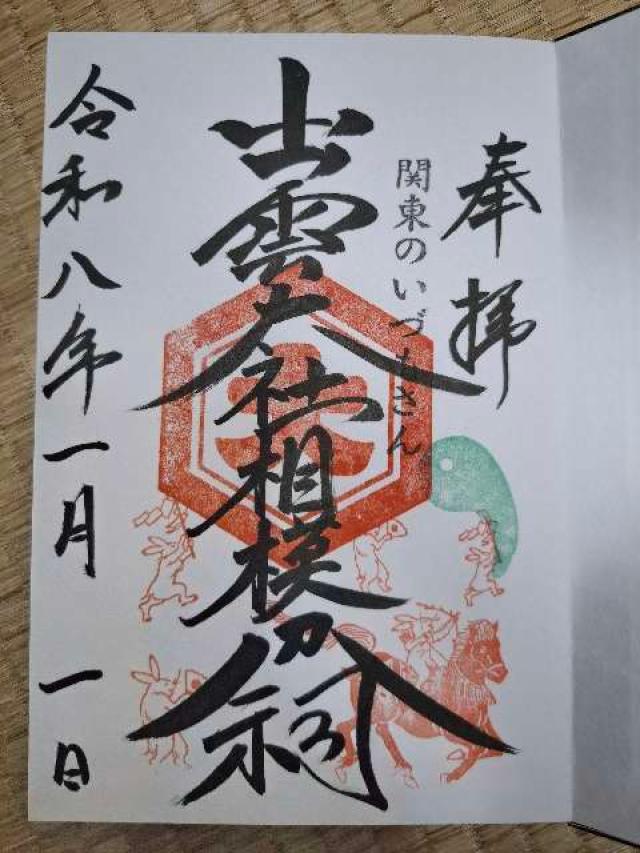 奉拝
関東のいづもさん
出雲大社相模分祠
令和八年一月一日